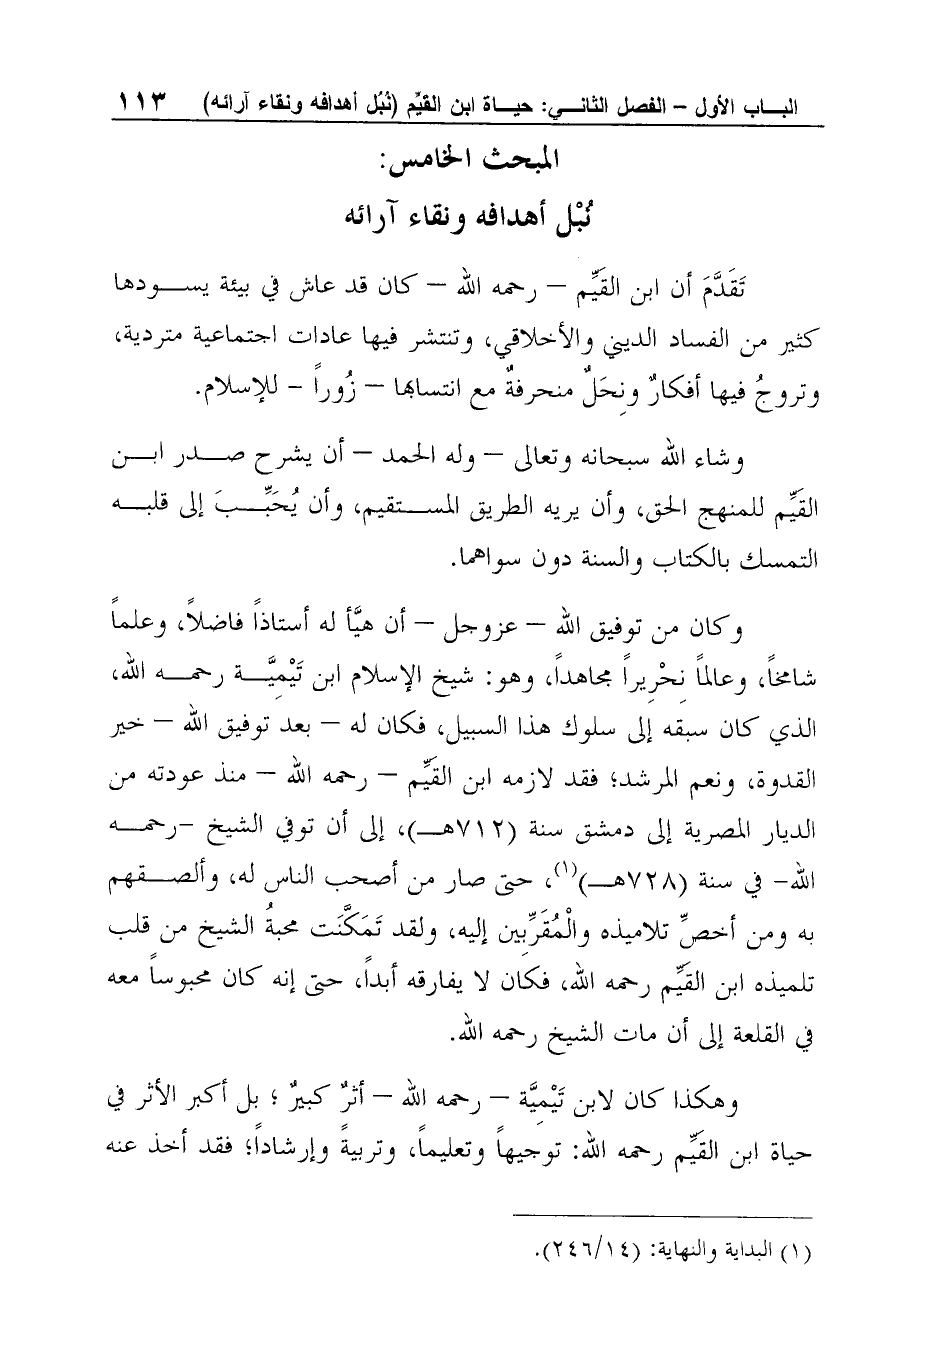 الباب الأول – الفصل الثاني: حياة ابن القيِّم (نُبُل أهدافه ونقاء آرائه) ١١٣
المبحث الخامس:
نُبْل أهدافه ونقاء آرائه
تَقَدَّمَ أن ابن القيِّم – رحمه الله – كان قد عاش في بيئة يسودها
كثير من الفساد الديني والأخلاقي، وتنتشر فيها عادات اجتماعية متردية،
وتروجُ فيها أفكارٌ ونِحَلٌ منحرفةٌ مع انتسابها – زُوراً – للإسلام.
وشاء الله سبحانه وتعالى – وله الحمد – أن يشرح صدر ابن
القيِّم للمنهج الحق، وأن يريه الطريق المستقيم، وأن يُحَبِّبَ إلى قلبه
التمسك بالكتاب والسنة دون سواهما.
وكان من توفيق الله – عزوجل – أن هيَّأ له أستاذاً فاضلاً، وعلماً
شامخاً، وعالماً نِحْرِيراً مجاهداً، وهو: شيخ الإسلام ابن تَيْمِيَّة رحمه الله،
الذي كان سبقه إلى سلوك هذا السبيل، فكان له – بعد توفيق الله – خير
القدوة، ونعم المرشد؛ فقد لازمه ابن القيِّم – رحمه الله – منذ عودته من
الديار المصرية إلى دمشق سنة (٧١٢هـ)، إلى أن توفي الشيخ –رحمه
الله– في سنة (٧٢٨هـ)(١)، حتى صار من أصحب الناس له، وألصقهم
به ومن أخصِّ تلاميذه والْمُقَرِّبِين إليه، ولقد تَمَكَّنَت محبةُ الشيخ من قلب
تلميذه ابن القيِّم رحمه الله، فكان لا يفارقه أبداً، حتى إنه كان محبوساً معه
في القلعة إلى أن مات الشيخ رحمه الله.
وهكذا كان لابن تَيْمِيَّة – رحمه الله – أثرٌ كبيرٌ ؛ بل أكبر الأثر في
حياة ابن القيِّم رحمه الله: توجيهاً وتعليماً، وتربيةً وإرشاداً؛ فقد أخذ عنه
(١) البداية والنهاية: (٢٤٦/١٤).